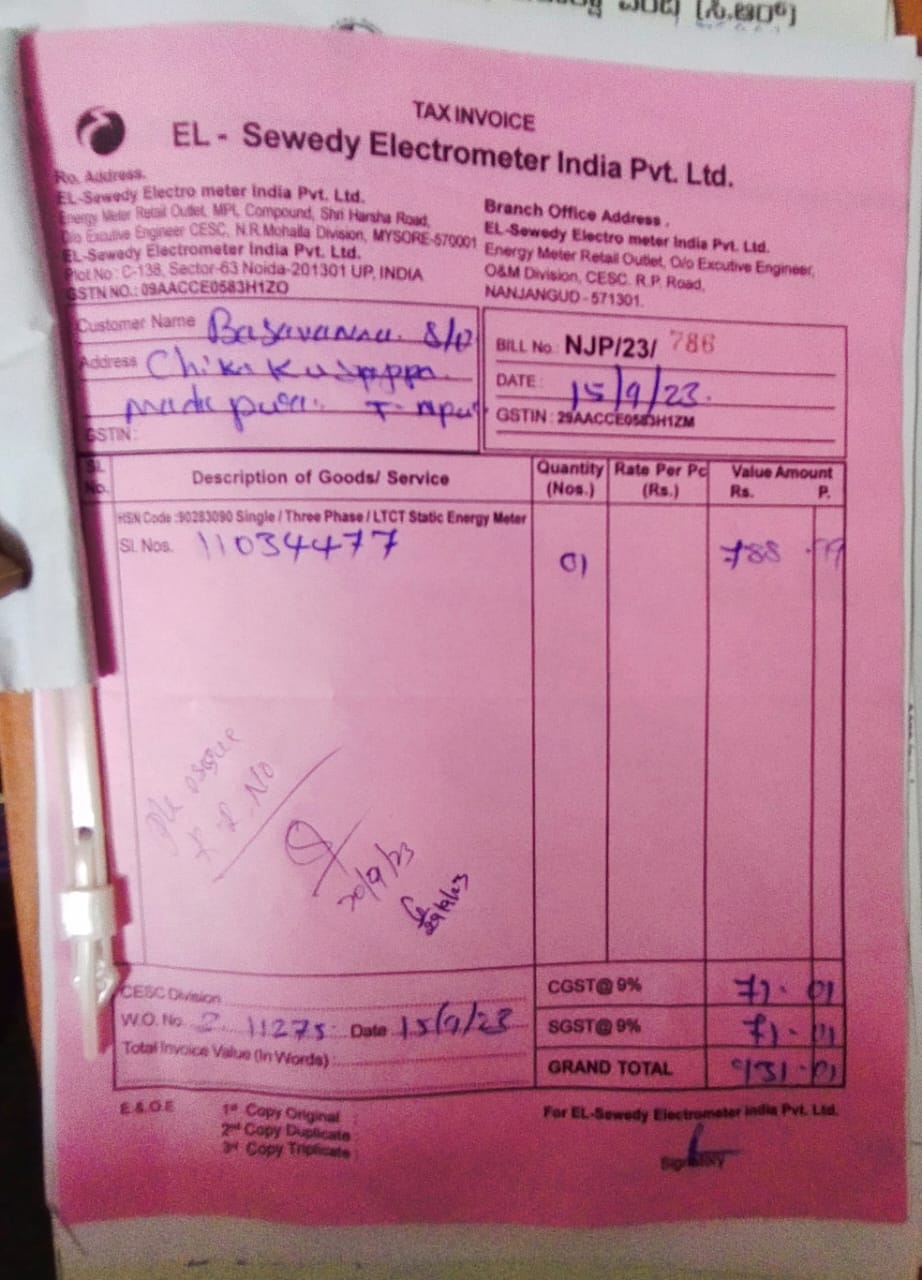 TAX INVOICE
EL - Sewedy Electrometer India Pvt. Ltd.
Ro. Address.
EL-Sewedy Electro meter India Pvt. Ltd.
Energy Meter Retail Outlet, MPL Compound, Shri Harsha Road,
O/o Excutive Engineer CESC, N.R.Mohalla Division, MYSORE-570001
EL-Sewedy Electrometer India Pvt. Ltd.
Plot No : C-138, Sector-63 Noida-201301 UP, INDIA
GSTN NO.: 09AACCE0583H1ZO
Branch Office Address ,
EL-Sewedy Electro meter India Pvt. Ltd.
Energy Meter Retail Outlet, O/o Excutive Engineer,
O&M Division, CESC. R.P. Road,
NANJANGUD - 571301.
Customer Name Basavanna. S/o
Address
GSTIN :
BILL No : NJP/23/ 786
DATE : 15/9/23.
GSTIN : 29AACCE0583H1ZM
SL. No. Description of Goods/ Service Quantity (Nos.) Rate Per Pc (Rs.) Value Amount Rs. P.
HSN Code :90283090 Single / Three Phase / LTCT Static Energy Meter
Sl. Nos. 11034477 01 788
R.R. No
20/9/23
CESC Division
W.O. No. 11275 Date 15/9/23
Total Invoice Value (In Words)
CGST@ 9% 71. 01
SGST@ 9% 71. 01
GRAND TOTAL 931.01
E.&.O.E
1st Copy Original
2nd Copy Duplicate
3rd Copy Triplicate
For EL-Sewedy Electrometer India Pvt. Ltd.
Signatory